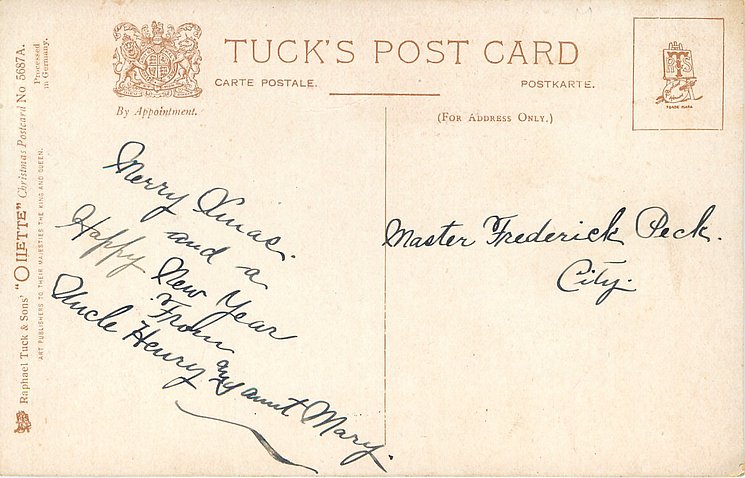 TUCK'S POST CARD
CARTE POSTALE. POSTKARTE.
By Appointment.
(For Address Only.)
TRADE MARK
Raphael Tuck & Sons' "OILETTE" Christmas Postcard No 5687A.
ART PUBLISHERS TO THEIR MAJESTIES THE KING AND QUEEN.
Processed
in Germany.
Merry Xmas.
and a
Happy New Year
From
Uncle Henry and aunt Mary.
Master Frederick Peck.
City.